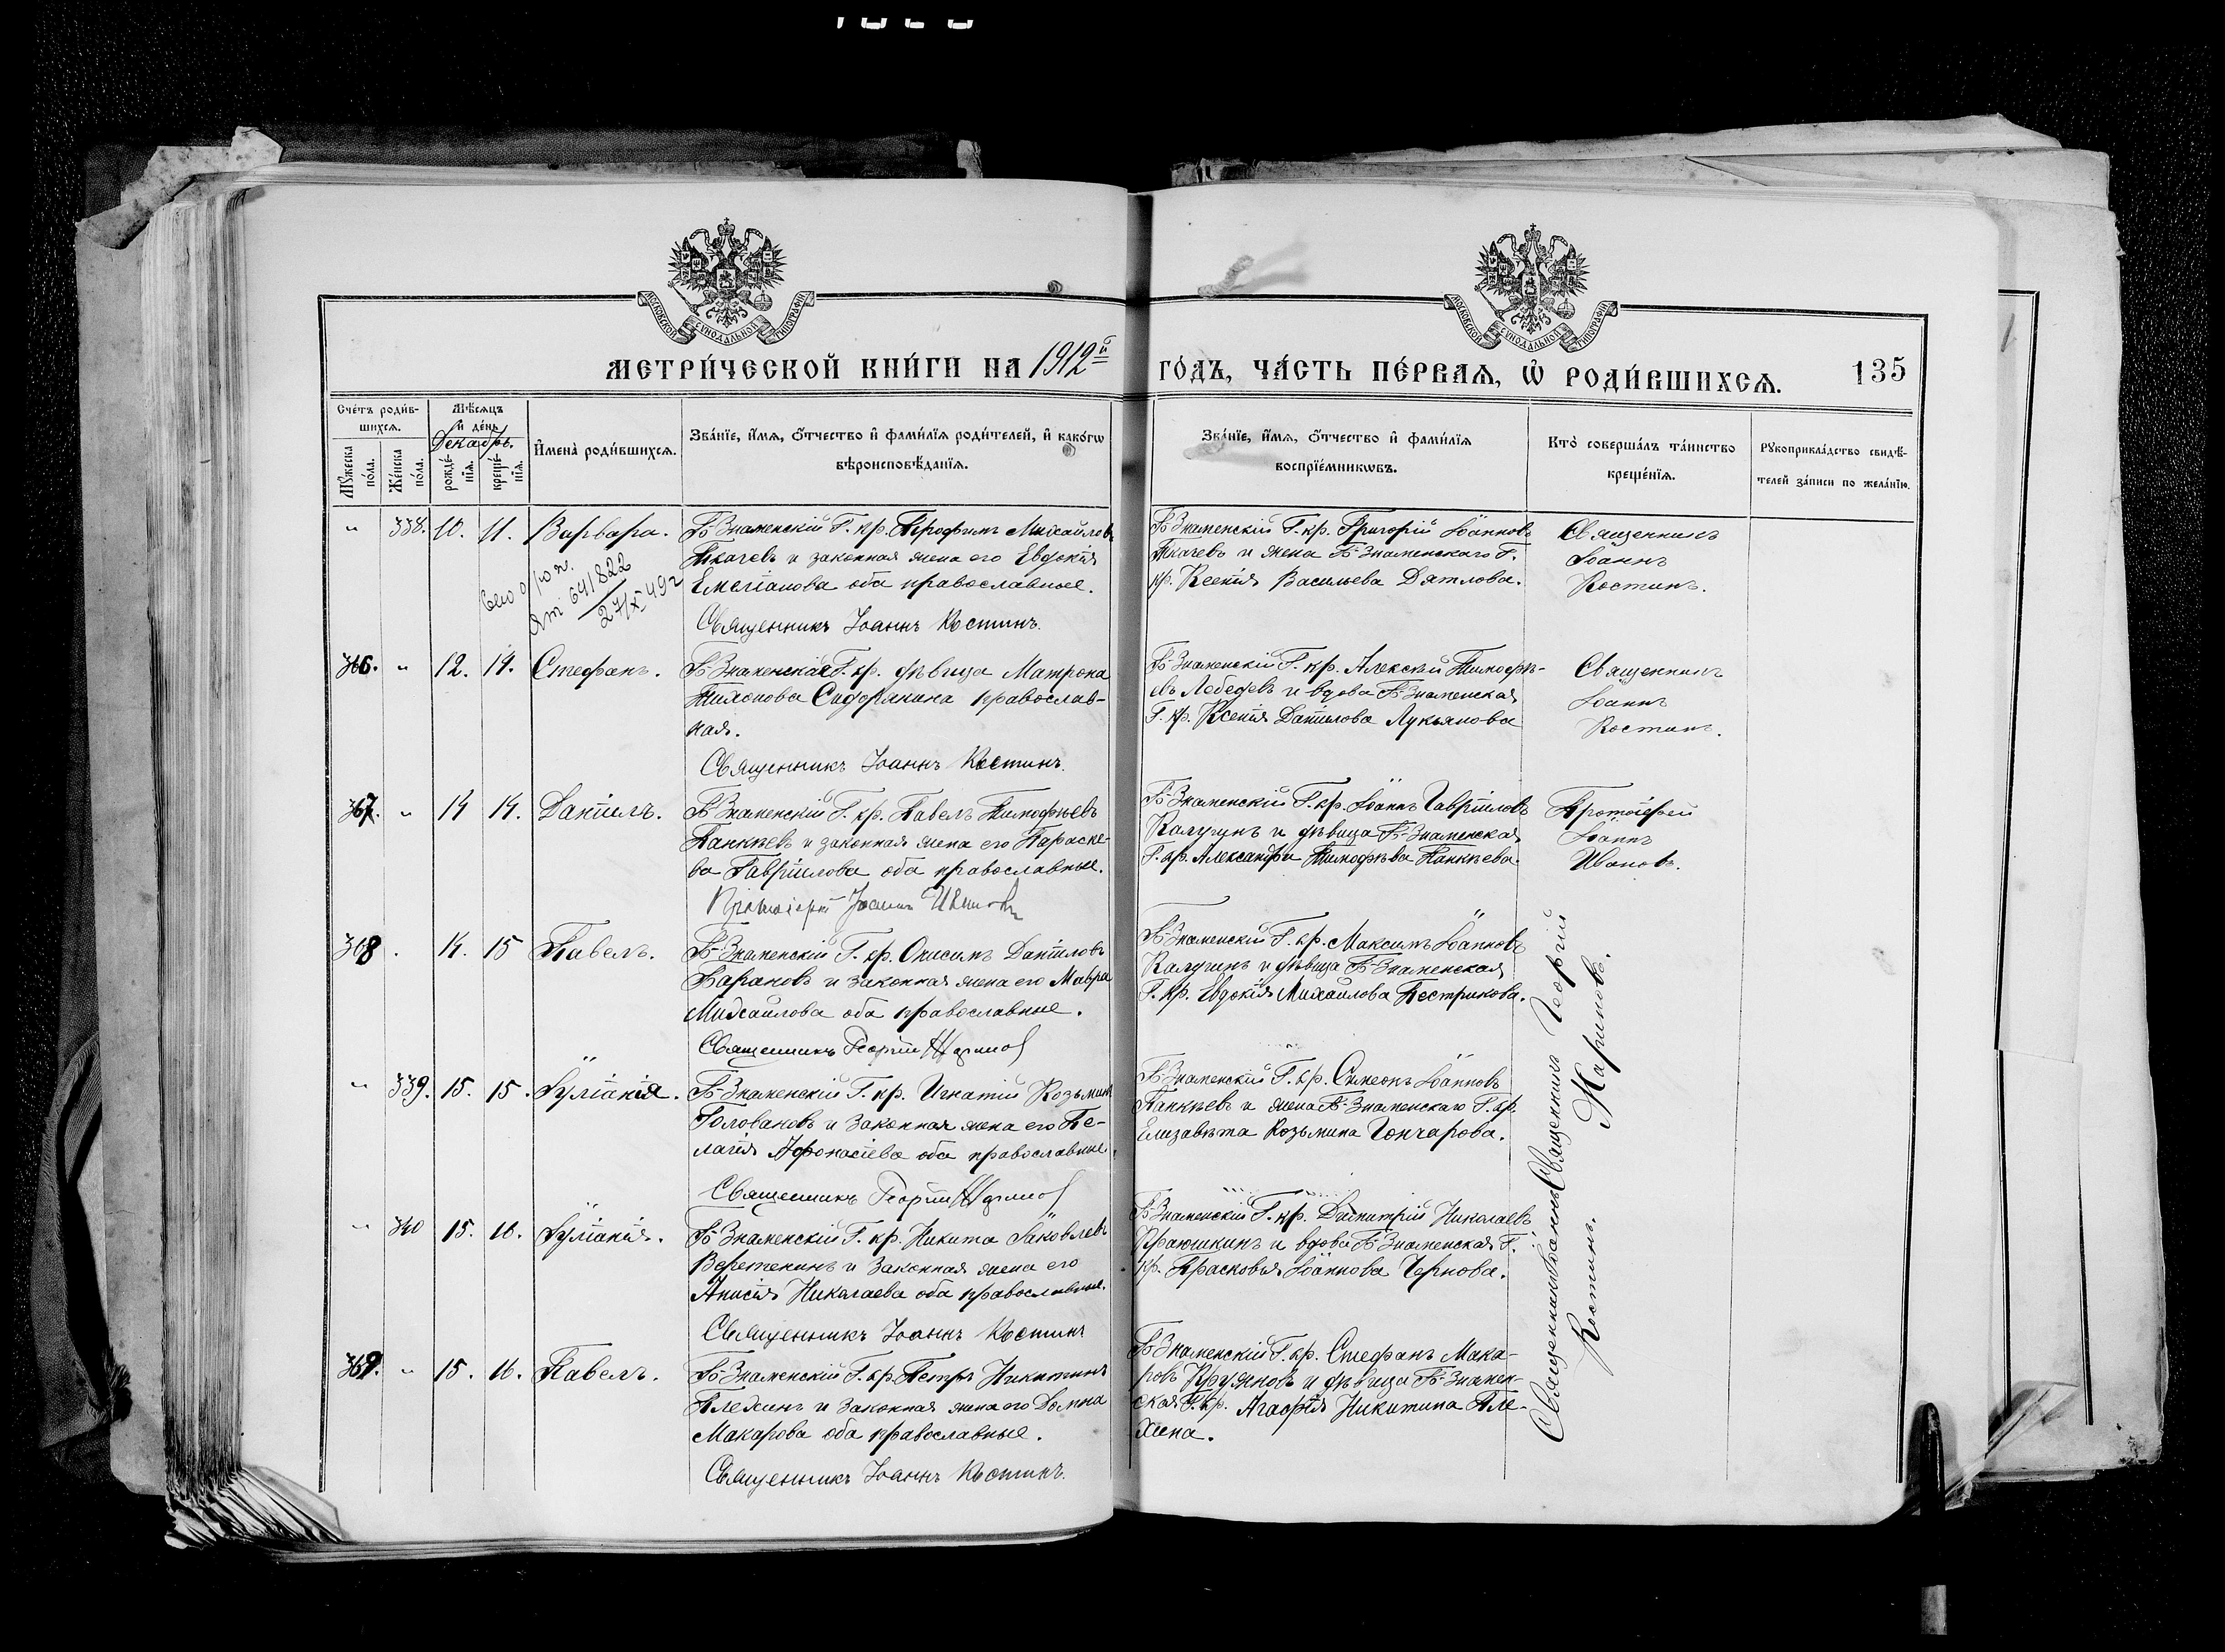 МОСКОВСКОЙ СѴНОДАЛЬНОЙ ТИПОГРАФІИ
МОСКОВСКОЙ СѴНОДАЛЬНОЙ ТИПОГРАФІИ
МЕТРИ́ЧЕСКОЙ КНИ́ГИ НА 1912й ГО́ДЪ, ЧА́СТЬ ПЕ́РВАЯ, Ѡ҆ РОДИ́ВШИХСѦ.
135
Сче́тъ роди́в-
шихсѧ.
Мꙋ́жеска по́ла.
Же́нска по́ла.
Мѣ́сѧцъ
и҆ де́нь
Декабрь.
рожде́-
нїѧ.
креще́-
нїѧ.
И҆мена̀ роди́вшихсѧ.
Зва́нїе, и҆́мѧ, ѻ҆́тчество и҆ фами́лїѧ роди́телей, и҆ како́гѡ
вѣроисповѣ́данїѧ.
Зва́нїе, и҆́мѧ, ѻ҆́тчество и҆ фами́лїѧ
воспрїе́мникѡвъ.
Кто̀ соверша́лъ та́инство
креще́нїѧ.
Рꙋкоприкла́дство свидѣ́-
телей за́писи по жела́нїю.
" 338. 10. 11. Варвара.
Б-Знаменскій Г. кр. Трофимъ Михайловъ
Ткачевъ и законная жена его Евдокія
Емеліанова оба православные.
Священникъ Іоаннъ Костинъ.
Б-Знаменскій Г. кр. Григорій Іоанновъ
Ткачевъ и жена Б-Знаменскаго Г.
кр. Ксенія Васильева Дятлова.
Священникъ
Іоаннъ
Костинъ.
641822
27/XI 49г
366. " 12. 14. Стефанъ.
Б-Знаменская Г. кр. дѣвица Матрона
Тихонова Сидорякина православ-
ная.
Священникъ Іоаннъ Костинъ.
Б-Знаменскій Г. кр. Алексѣй Тимофѣ-
евъ Лебедевъ и вдова Б-Знаменская
Г. кр. Ксенія Даніилова Лукьянова
Священникъ
Іоаннъ
Костинъ.
367. " 14 14. Даніилъ.
Б-Знаменскій Г. кр. Павелъ Тимофѣевъ
Панкѣевъ и законная жена его Параске-
ва Гавріилова оба православные.
Протоіерей Іоаннъ Ивановъ
Б-Знаменскій Г. кр. Іоаннъ Гавріиловъ
Калугинъ и дѣвица Б-Знаменская
Г. кр. Александра Тимофѣева Панкѣева.
Протоіерей
Іоаннъ
Ивановъ.
368. 14. 15 Павелъ.
Б-Знаменскій Г. кр. Онисимъ Даніиловъ
Барановъ и законная жена его Мавра
Михайлова оба православные.
Священникъ Георгій
Б-Знаменскій Г. кр. Максимъ Іоанновъ
Калугинъ и дѣвица Б-Знаменская
Г. кр. Евдокія Михайлова Пестрикова.
Священникъ Георгій
" 339. 15. 15. Іуліанія.
Б-Знаменскій Г. кр. Игнатій Козьминъ
Головановъ и законная жена его Пе-
лагія Афонасіева оба православные.
Священникъ Георгій
Б-Знаменскій Г. кр. Симеонъ Іоанновъ
Панкѣевъ и жена Б-Знаменскаго Г. кр.
Елизавѣта Козьмина Гончарова.
" 340 15. 16. Іуліанія.
Б-Знаменскій Г. кр. Никита Іаковлевъ
Веретенинъ и законная жена его
Анисія Николаева оба православные.
Священникъ Іоаннъ Костинъ
Б-Знаменскій Г. кр. Димитрій Николаевъ
Краюшкинъ и вдова Б-Знаменская Г.
кр. Прасковья Іоаннова Чернова.
Священникъ Іоаннъ
Костинъ.
369. " 15. 16. Павелъ.
Б-Знаменскій Г. кр. Петръ Никитинъ
Плехинъ и законная жена его Домна
Макарова оба православные.
Священникъ Іоаннъ Костинъ.
Б-Знаменскій Г. кр. Стефанъ Мака-
ровъ и дѣвица Б-Знамен-
ская Г. кр. Агафія Никитина Пле-
хина.